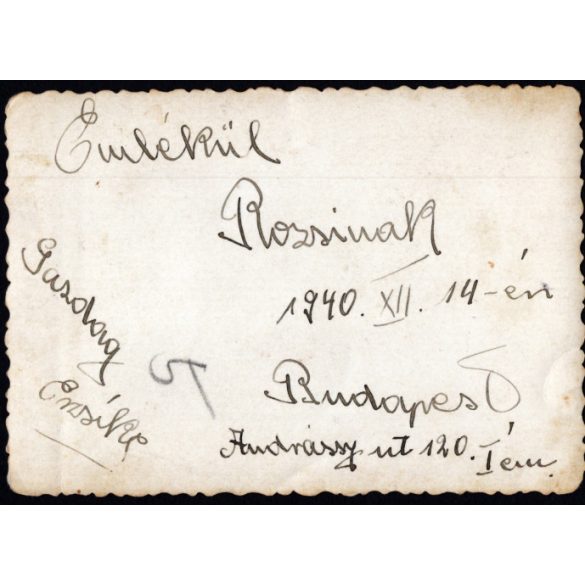 Emlékül
Rozsinak
1940. XII. 14-én
Budapest
Andrássy ut 120. I em.
Gazdag
Erzsike